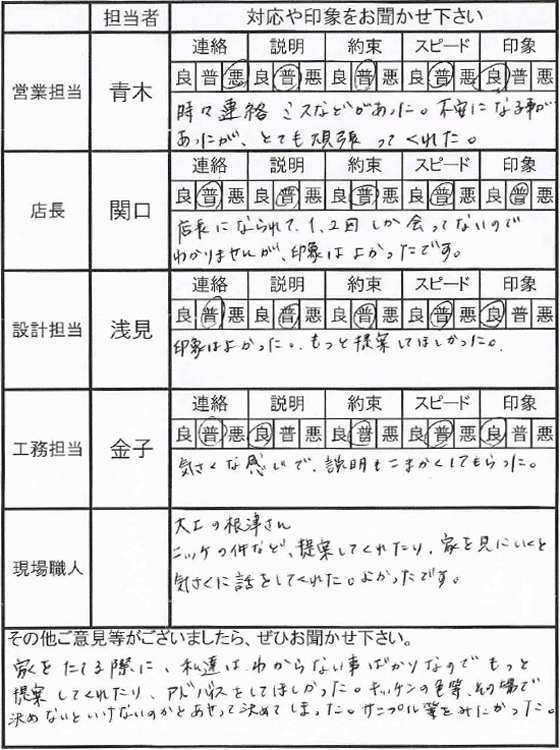 担当者 対応や印象をお聞かせ下さい
営業担当 青木
連絡 説明 約束 スピード 印象
良 普 悪 良 普 悪 良 普 悪 良 普 悪 良 普 悪
時々連絡ミスなどがあった。不安になる事が
あったが、とても頑張ってくれた。
店長 関口
連絡 説明 約束 スピード 印象
良 普 悪 良 普 悪 良 普 悪 良 普 悪 良 普 悪
店長になられて、1、2回しか会ってないので
わかりませんが、印象はよかったです。
設計担当 浅見
連絡 説明 約束 スピード 印象
良 普 悪 良 普 悪 良 普 悪 良 普 悪 良 普 悪
印象はよかった。もっと提案してほしかった。
工務担当 金子
連絡 説明 約束 スピード 印象
良 普 悪 良 普 悪 良 普 悪 良 普 悪 良 普 悪
気さくな感じで、説明もこまかくしてもらった。
現場職人
大工の根津さん
ニッケの件など、提案してくれたり、家を見にいくと
気さくに話をしてくれた。よかったです。
その他ご意見等がございましたら、ぜひお聞かせ下さい。
家をたてる際に、私達はわからない事ばかりなのでもっと
提案してくれたり、アドバイスをしてほしかった。キッチンの色等、その場で
決めないといけないのかとあせって決めてしまった。サンプル等をみたかった。